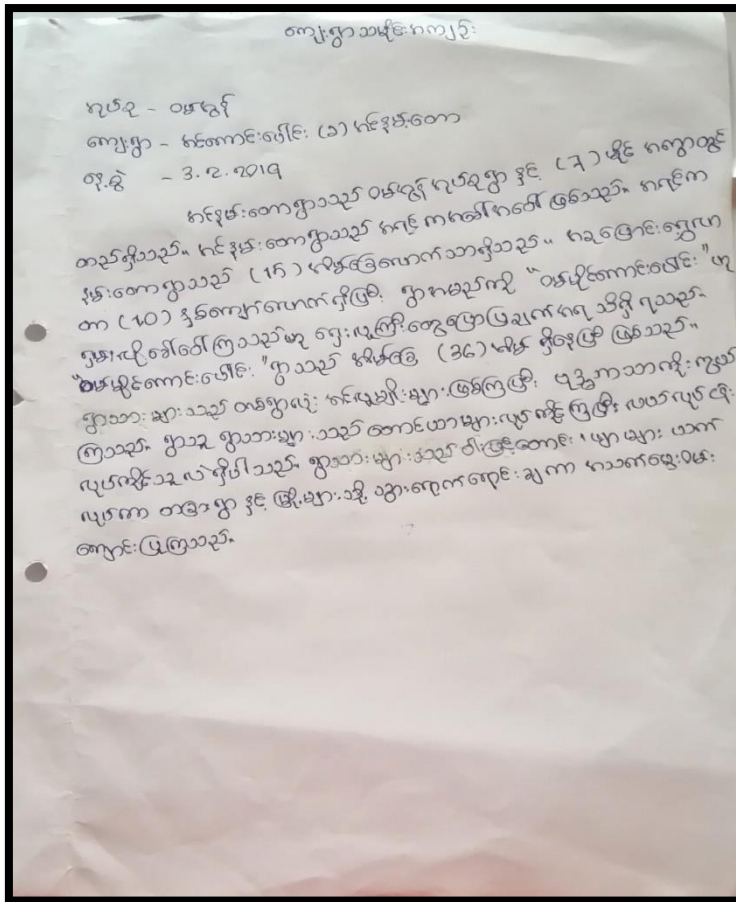 ကျေးရွာသမိုင်းအကျဉ်း
အုပ်စု - ဝမ်ဟွန်
ကျေးရွာ - အင်တောင်းပေါင်း (ခ) အင်နမ်းတော
နေ့စွဲ - 3.2.2019
အင်နမ်းတောရွာသည် ဝမ်ဟွန်အုပ်စုရွာ နှင့် (7) မိုင် အကွာတွင်
တည်ရှိသည်။ အင်နမ်းတောရွာသည် အရင်ကအခေါ်အဝေါ် ဖြစ်သည်။ အရင်က
နမ်းတောရွာသည် (15) အိမ်ခြေလောက်သာရှိသည်။ အခုပြောင်းရွှေ့လာ
တာ (10) နှစ်ကျော်လောက်ရှိပြီး ရွာအမည်ကို "ဝမ်မိုင်တောင်းပေါင်း" ဟု
ရှမ်းလိုခေါ်ဝေါ်ကြသည်ဟု ရှေးလူကြီးတွေပြောပြချက်အရ သိရှိရသည်။
"ဝမ်မိုင်တောင်းပေါင်း" ရွာသည် အိမ်ခြေ (36) အိမ် ရှိနေပြီ ဖြစ်သည်။
ရွာသားများသည် တစ်ရွာလုံး အင်လူမျိုးများဖြစ်ကြပြီး ဗုဒ္ဓဘာသာကိုးကွယ်
ကြသည်။ ရွာသူ ရွာသားများသည် တောင်ယာများလုပ်ကိုင်ကြပြီး လဖက်လုပ်ငန်း
လုပ်ကိုင်သူလဲရှိပါသည်။ ရွာသားများသည် ဝါးဖြင့်တောင်း၊ ဖျာများ ယက်
လုပ်ကာ တခြားရွာ နှင့် မြို့များသို့ သွားရောက်ရောင်းချကာ အသက်မွေးဝမ်း
ကျောင်းပြုကြသည်။